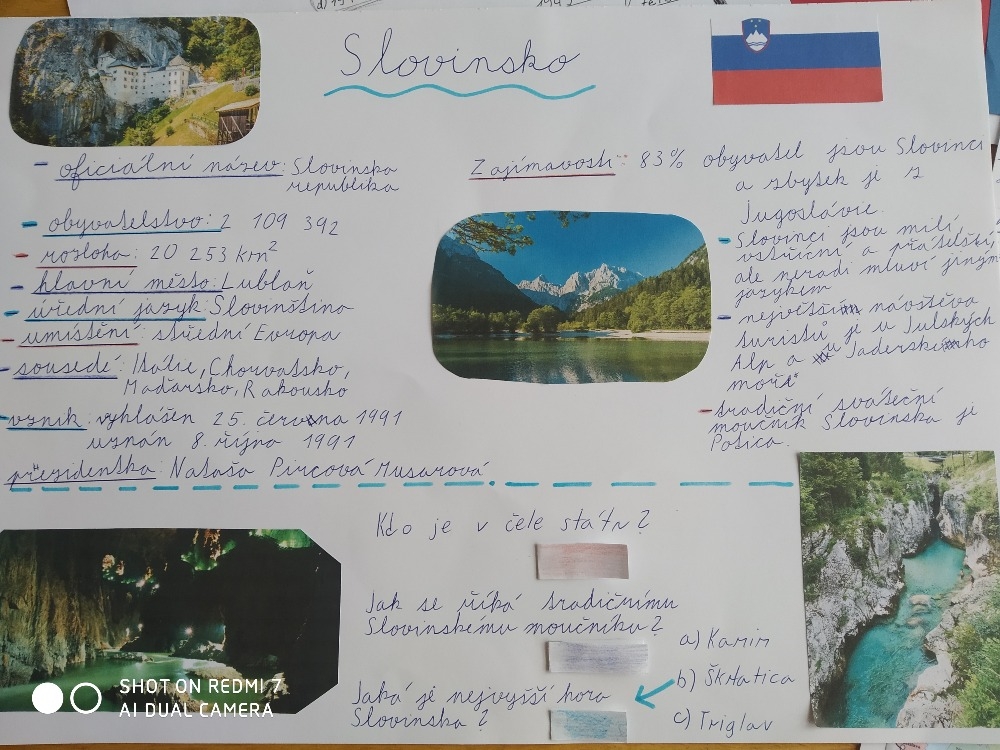 Slovinsko
- oficiální název: Slovinska
republika
- obyvatelstvo: 2 109 392
- rozloha: 20 253 km²
- hlavní město: Lublaň
- úřední jazyk Slovinština
- umístění: střední Evropa
- sousedé: Itálie, Chorvatsko,
Maďarsko, Rakousko
- vznik: vyhlášen 25. června 1991
uznán 8. října 1991
prezidentka: Nataša Pircová Musarová
Zajímavosti: 83% obyvatel jsou Slovinci
a zbytek je z
Jugoslávie.
- Slovinci jsou milí,
vstřícní a přátelští,
ale neradi mluví jiným
jazykem
- největší návštěva
turistů je u Julských
Alp a u Jaderského
moře
- tradiční sváteční
moučník Slovinska je
Potica.
Kdo je v čele státu?
Jak se říká tradičnímu
Slovinskému moučníku?
Jaká je nejvyšší hora
Slovinska?
a) Kamin
b) Škrlatica
c) Triglav
SHOT ON REDMI 7
AI DUAL CAMERA